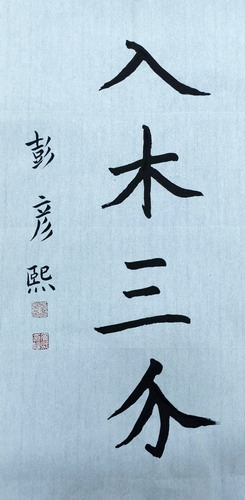 入木三分
彭彦熙